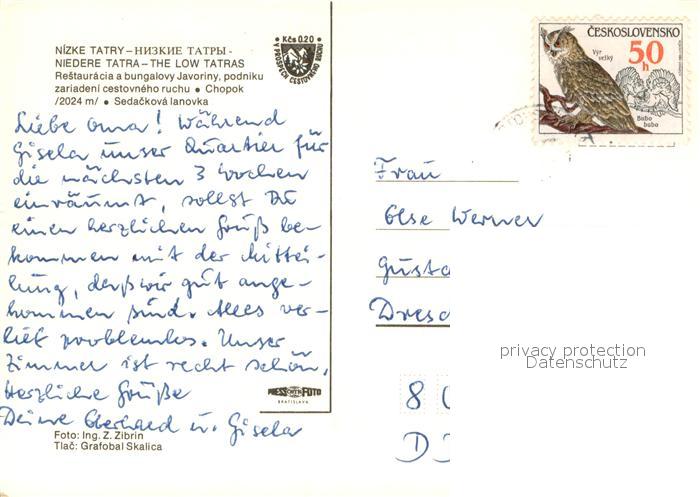 NÍZKE TATRY – НИЗКИЕ ТАТРЫ -
NIEDERE TATRA – THE LOW TATRAS
Reštaurácia a bungalovy Javoriny, podniku
zariadení cestovného ruchu • Chopok
/2024 m/ • Sedačková lanovka
Kčs 0.20
V PROSPECH CESTOVNÉHO RUCHU
ČESKOSLOVENSKO
50 h
Výr
velký
Bubo
bubo
Liebe Oma! Während
Gisela unser Quartier für
die nächsten 3 Wochen
einräumt, sollst Du
einen herzlichen Gruß be-
kommen mit der Mittei-
lung, daß wir gut ange-
kommen sind. Alles ver-
lief problemlos. Unser
Zimmer ist recht schön.
Herzliche Grüße
Deine Eberhard u. Gisela
Frau
Else Werner
Gusta
Dresd
8
D
privacy protection
Datenschutz
PRESSFOTO
BRATISLAVA
Foto: Ing. Z. Zibrin
Tlač: Grafobal Skalica